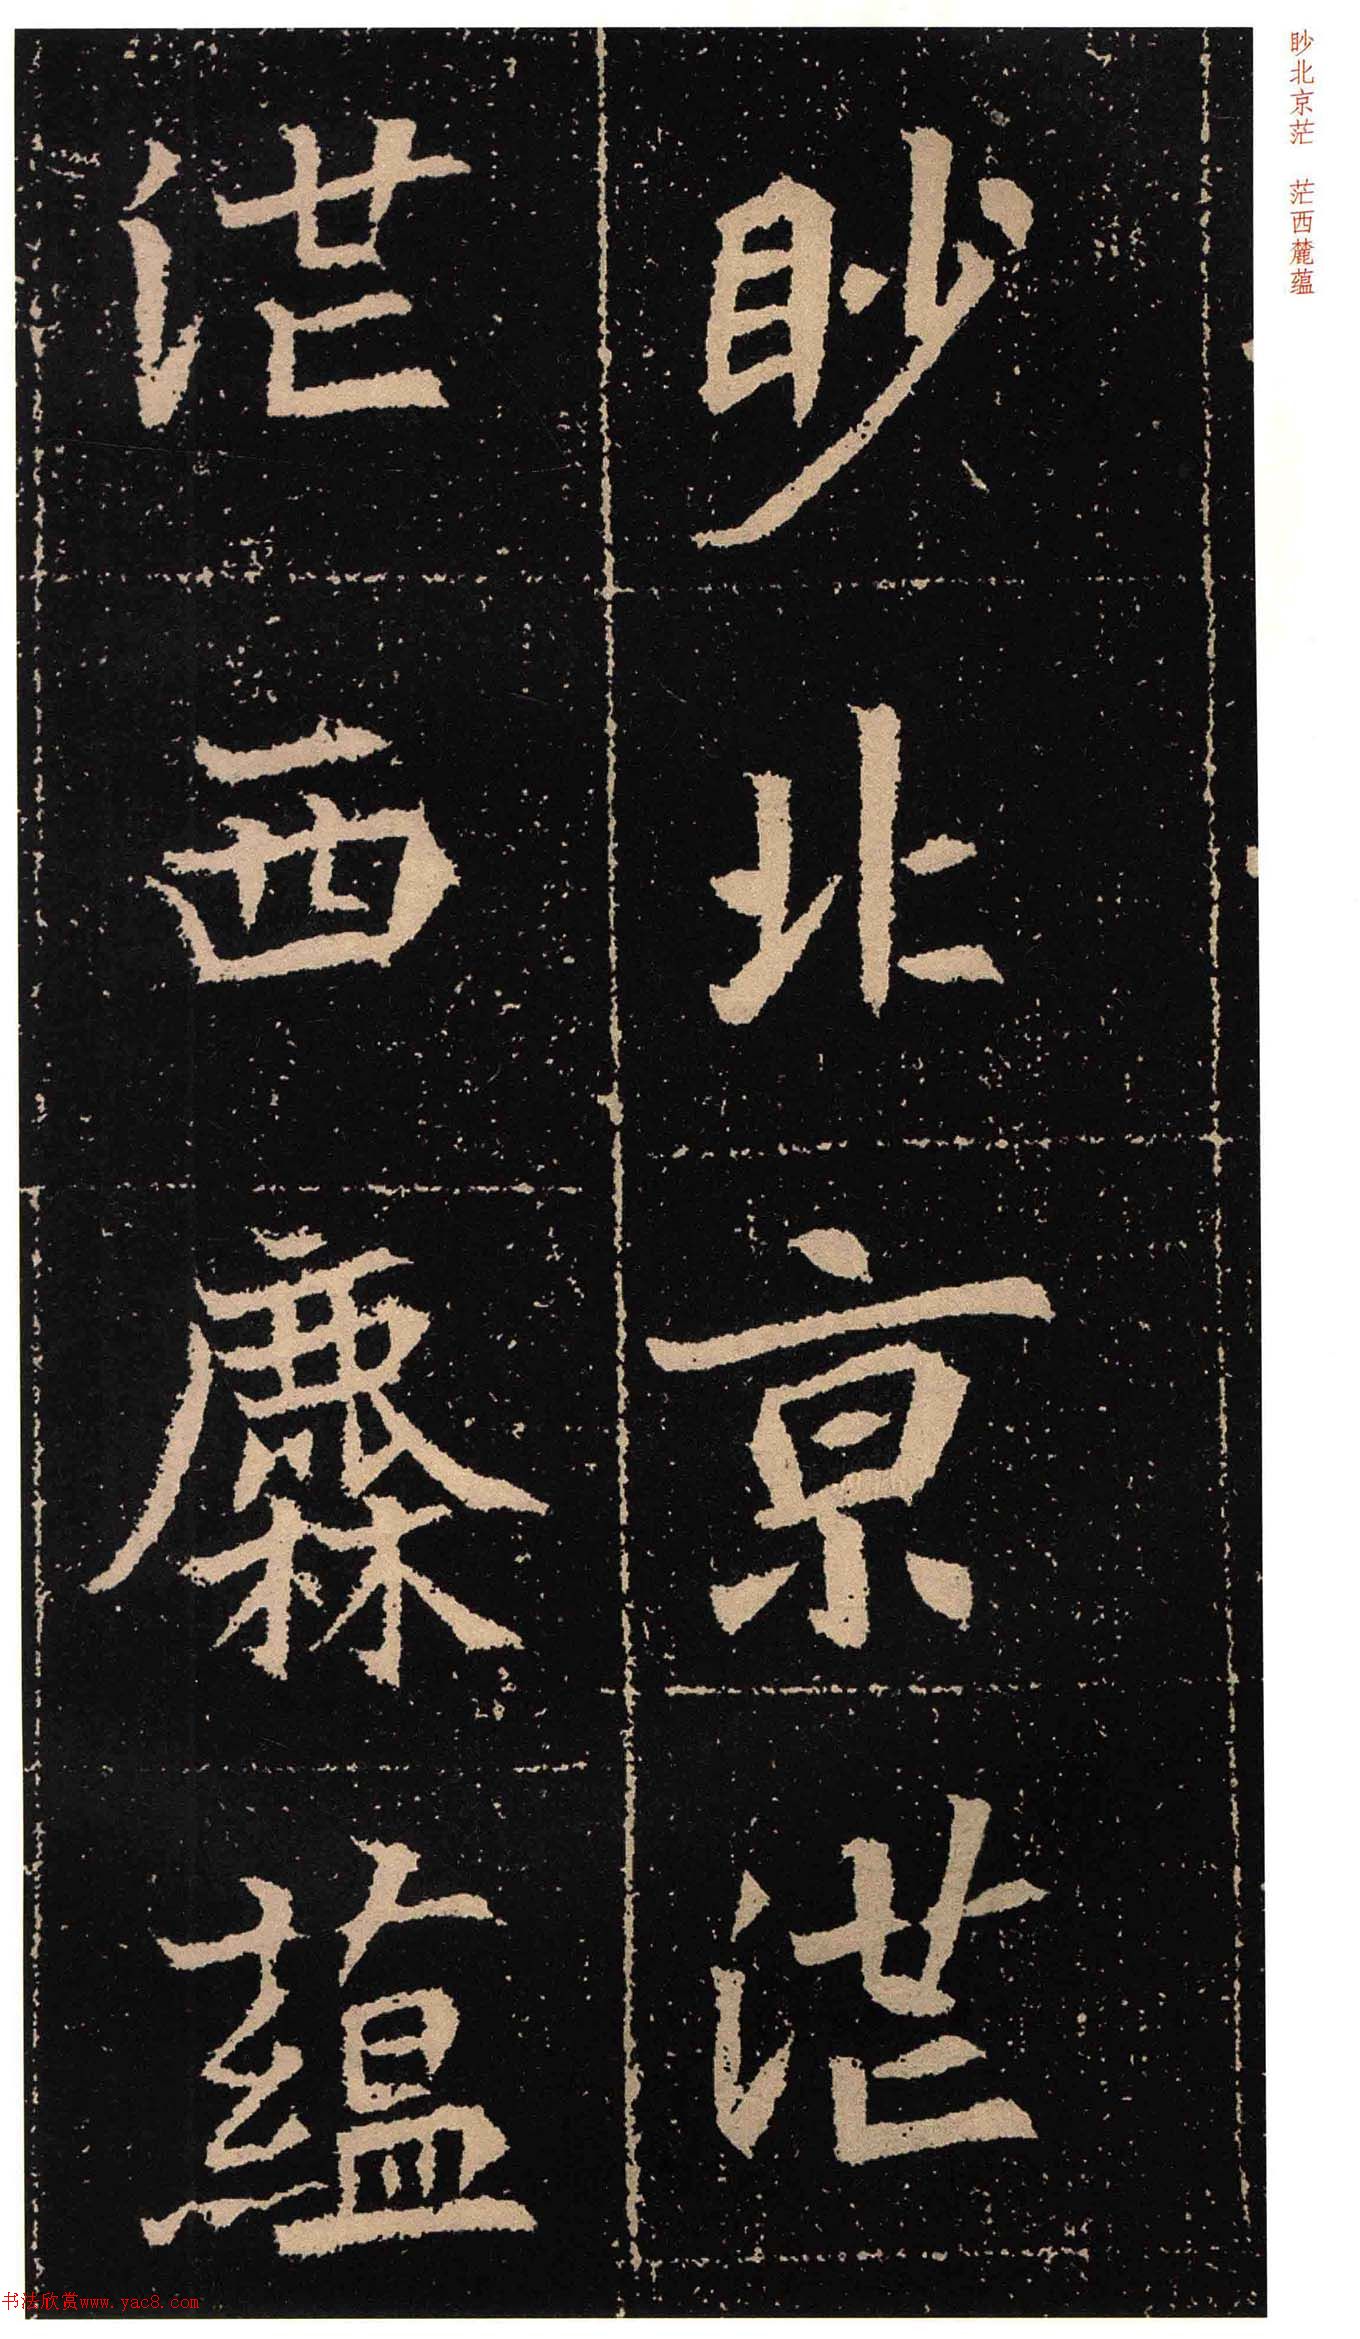 眇北京茫
茫西麓蕴
眇北京茫　茫西麓蕴
书法欣赏www.yac8.com